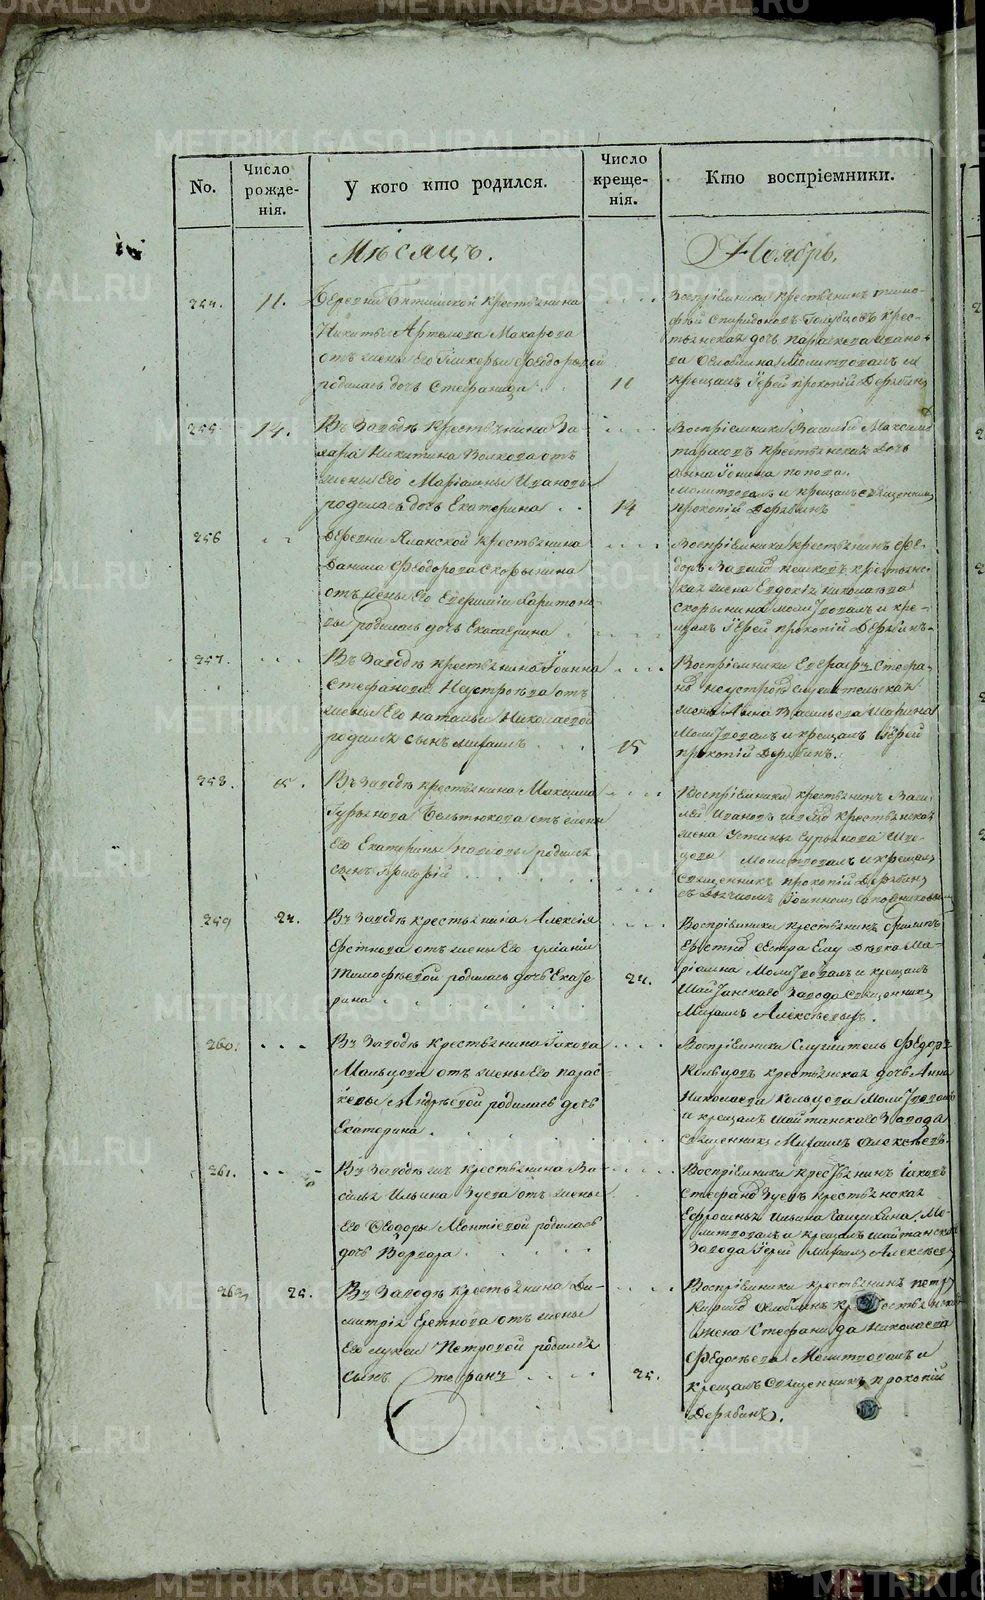 METRIKI.GASO-URAL.RU
No.
Число рожденія.
У кого кто родился.
Число крещенія.
Кто воспріемники.
Мѣсяцъ.
Ноябрь.
254.
11.
крестьянина
Никиты Артемова Макарова
отъ жены его Гликерьи Феодоровой
родилась дочь Стефанида
11
Воспріемники крестьянинъ Тимо-
фей Спиридоновъ Голубцовъ крес-
тьянская дочь Параскева Ивано-
ва молитвовалъ и
крещалъ Іерей Прокопій Дерябинъ
255.
14.
Въ Заводѣ крестьянина За-
хара Никитина Волкова отъ
жены Его Маріамны Ивановы
родилась дочь Екатерина
14
Воспріемники Василій Максимовъ
Тарасовъ крестьянская Дочь
Анна Попова.
Молитвовалъ и крещалъ священникъ
Прокопій Дерябинъ
256
Деревни крестьянина
Данила Феодорова Скорынина
отъ жены Его Евфиміи Харитоно-
вы родилась дочь Екатерина
Воспріемники крестьянинъ Фе-
доръ крестьянс-
кая жена Евдокія Николаева
Скорынина молитвовалъ и кре-
щалъ Іерей Прокопій Дерябинъ
257.
Въ Заводѣ крестьянина Іоанна
Стефанова Неустроева отъ
жены Его Натальи Николаевой
родился сынъ Михаилъ
15
Воспріемники Евграфъ Стефа-
новъ Неустроевъ служительская
жена Анна Васильева
Молитвовалъ и крещалъ Іерей
Прокопій Дерябинъ.
258.
15.
Въ Заводѣ крестьянина Максима
Гурьянова Бельтюкова отъ жены
Его Екатерины Павловы родился
сынъ Григорій
Воспріемники крестьянинъ Васи-
лей Ивановъ крестьянская
жена Устинья Гурьянова
Молитвовалъ и крещалъ
священникъ Прокопій Дерябинъ
съ Дьячкомъ Іоанномъ
259
24.
Въ Заводѣ крестьянина Алексія
отъ жены Его Уліаніи
Тимофѣевой родилась дочь Екате-
рина
24.
Воспріемники крестьянинъ Филипъ
сестра Ему Дѣвка Ма-
ріамна Молитвовалъ и крещалъ
Шайтанскаго Завода священникъ
Михаилъ Алексѣевъ.
260.
Въ Заводѣ крестьянина Іакова
Мальцова отъ жены Его Парас-
кевы Андреевой родилась дочь
Екатерина
Воспріемники Служитель Федоръ
Кольцовъ крестьянская дочь Анна
Николаева Кольцова Молитвовалъ
и крещалъ Шайтанскаго Завода
священникъ Михаилъ Алексѣевъ.
261.
Въ Заводѣ крестьянина Ва-
силья Ильина Зуева отъ жены
Его Феодоры Леонтіевой родилась
дочь Варвара
Воспріемники крестьянинъ Іаковъ
Стефановъ Зуевъ крестьянская
Ефросинья Ильина Мо-
литвовалъ и крещалъ Шайтанскаго
Завода Іерей Михаилъ Алексѣевъ
262
25.
Въ Заводѣ крестьянина Ди-
митрія отъ жены
Его Лукеи Петровой родился
сынъ Стефанъ
25.
Воспріемники крестьянинъ Петръ
крестьянская
жена Стефанида Николаева
Федосѣева Молитвовалъ и
крещалъ Священникъ Прокопій
Дерябинъ.